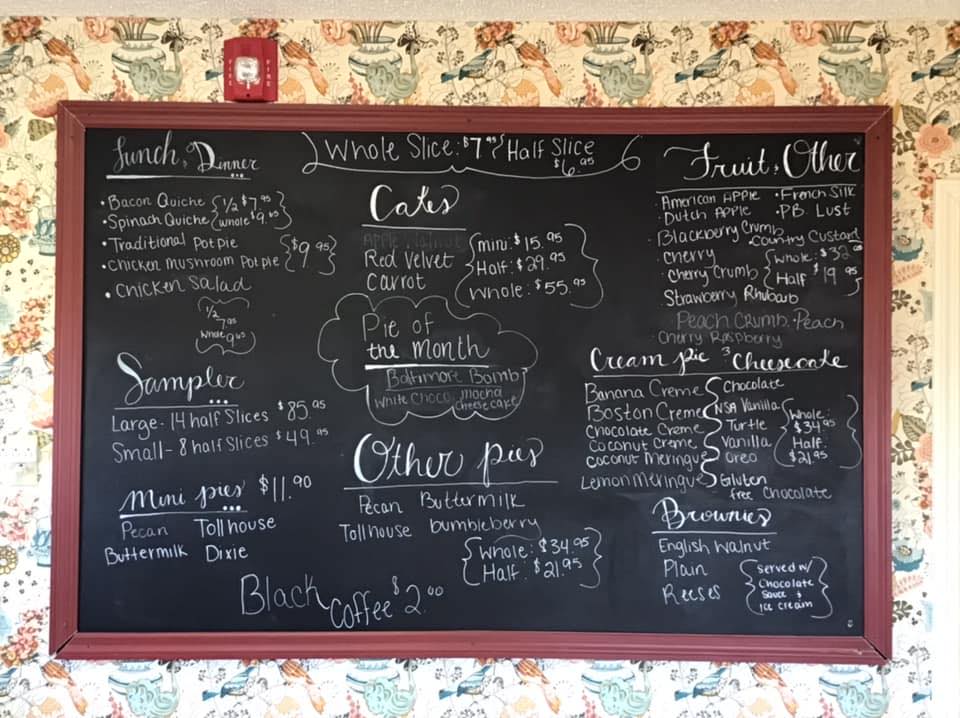 FIRE
FIRE
Lunch, Dinner
• Bacon Quiche
• Spinach Quiche
1/2 $7.95
whole $9.65
• Traditional Pot pie
• Chicken Mushroom Pot pie
$9.95
• Chicken Salad
1/2
7.95
whole 9.65
Sampler
Large - 14 half Slices $85.95
Small - 8 half Slices $49.95
Mini pies $11.90
Pecan Tollhouse
Buttermilk Dixie
Black Coffee $2.00
Whole Slice: $7.95 Half Slice $6.95
Cakes
Apple Walnut
Red Velvet
Carrot
mini: $15.95
Half: $29.95
Whole: $55.95
Pie of
the Month
Baltimore Bomb
White Choco mocha
cheesecake
Other pies
Pecan Buttermilk
Tollhouse bumbleberry
Whole: $34.95
Half: $21.95
Fruit, Other
• American Apple • French Silk
• Dutch Apple • P.B. Lust
• Blackberry Crumb
• Country Custard
• Cherry
• Cherry Crumb
Whole: $32.00
Half $19.95
Strawberry Rhubarb
Peach Crumb • Peach
Cherry Raspberry
Cream pie & Cheesecake
Banana Creme
Boston Creme
Chocolate Creme
Coconut Creme
Coconut Meringue
Lemon Meringue
Chocolate
NSA Vanilla
Turtle
Vanilla
Oreo
Gluten
free Chocolate
Whole:
$34.95
Half:
$21.95
Brownies
English Walnut
Plain
Reeses
Served w/
Chocolate
Sauce &
Ice cream